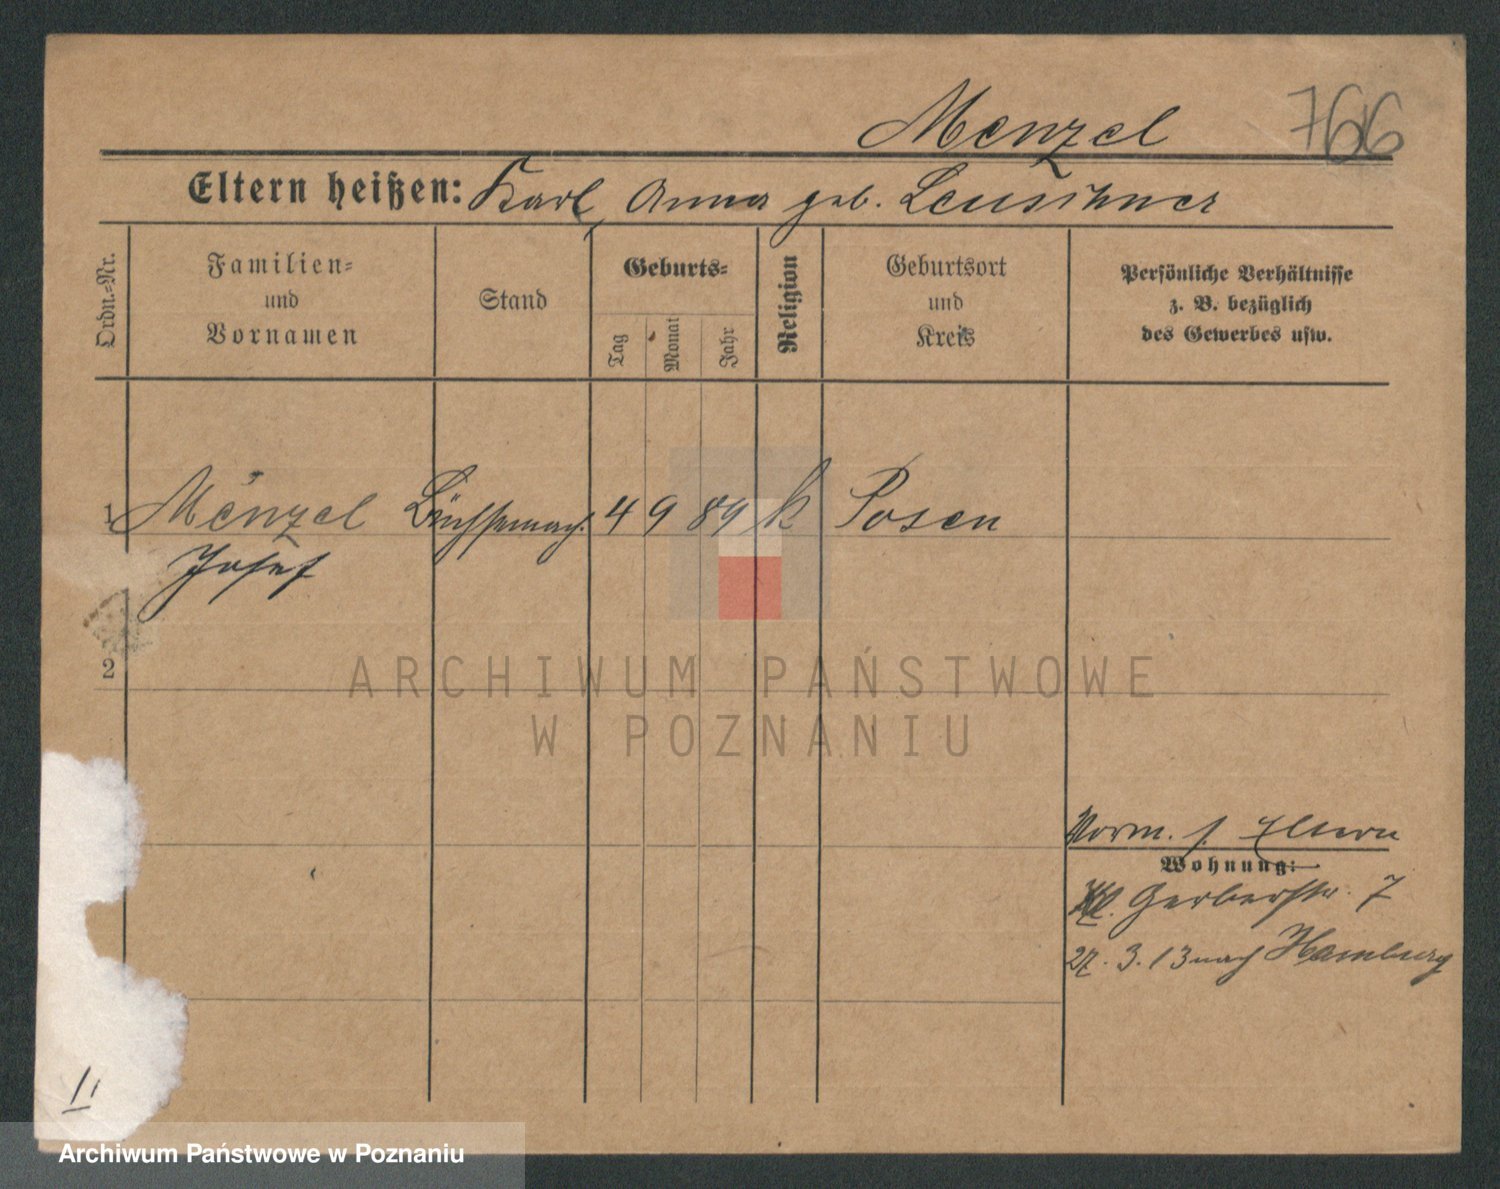 Menzel 766
Eltern heißen: Karl, Anna geb. Leuschner
Ordn.-Nr.
Familien-
und
Vornamen
Stand
Geburts-
Tag
Monat
Jahr
Religion
Geburtsort
und
Kreis
Persönliche Verhältnisse
z. B. bezüglich
des Gewerbes usw.
1 Menzel Büchsenmach. 4 9 89 k Posen
Josef
2
ARCHIWUM PAŃSTWOWE
W POZNANIU
Vorm. s. Eltern
Wohnung:
Kl. Gerberstr. 7
27. 3. 13 nach Hamburg
Archiwum Państwowe w Poznaniu